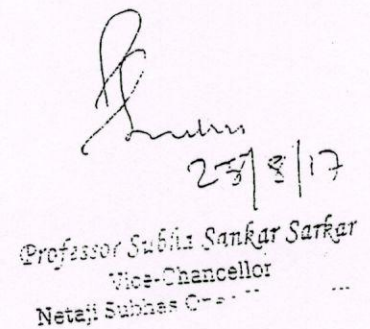 23/8/17
Professor Subha Sankar Sarkar
Vice-Chancellor
Netaji Subhas